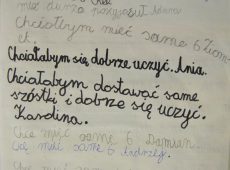 Chciałabym mieć same 6
Chciałabym się dobrze uczyć. Ania.
Chciałabym dostawać same
szóstki i dobrze się uczyć.
Karolina.
Chcę mieć same 6 Damian.
Chcę mieć same 6 Andrzej.